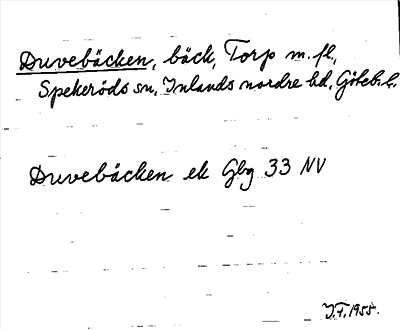 Duvebäcken, bäck, Torp m.fl.,
Spekeröds sn, Inlands nordre hd, Göteb. l.
Duvebäcken ek Gbg 33 NV
J.F. 1955.